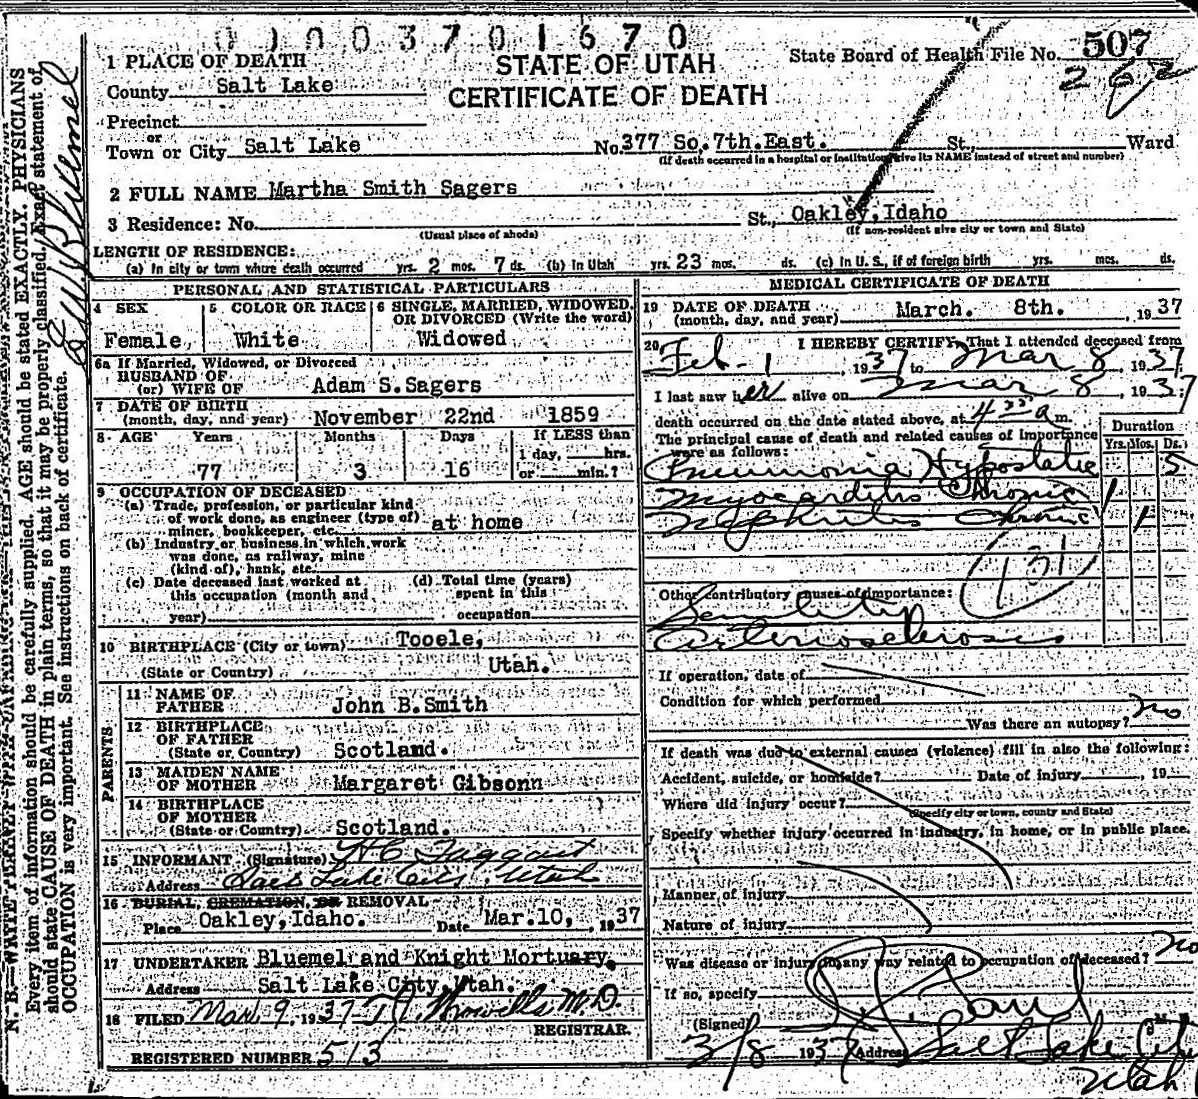 0100370 1670
STATE OF UTAH
CERTIFICATE OF DEATH
State Board of Health File No. 507
1 PLACE OF DEATH
County Salt Lake
Precinct
or
Town or City Salt Lake No. 377 So. 7th. East. St., Ward
(If death occurred in a hospital or institution, give its NAME instead of street and number)
2 FULL NAME Martha Smith Sagers
3 Residence: No. St., Oakley, Idaho
(Usual place of abode) (If non-resident give city or town and State)
LENGTH OF RESIDENCE:
(a) In city or town where death occurred yrs. 2 mos. 7 ds. (b) In Utah yrs. 23 mos. ds. (c) In U. S., if of foreign birth yrs. mos. ds.
PERSONAL AND STATISTICAL PARTICULARS
4 SEX Female
5 COLOR OR RACE White
6 SINGLE, MARRIED, WIDOWED, OR DIVORCED (Write the word) Widowed
6a If Married, Widowed, or Divorced
HUSBAND OF
(or) WIFE OF Adam S. Sagers
7 DATE OF BIRTH
(month, day, and year) November 22nd 1859
8 AGE Years Months Days If LESS than
1 day, hrs.
77 3 16 or min.?
9 OCCUPATION OF DECEASED
(a) Trade, profession, or particular kind
of work done, as engineer (type of)
miner, bookkeeper, etc. at home
(b) Industry or business in which work
was done, as railway, mine
(kind of), bank, etc.
(c) Date deceased last worked at
this occupation (month and
year)
(d) Total time (years)
spent in this
occupation
10 BIRTHPLACE (City or town) Tooele,
(State or Country) Utah.
PARENTS
11 NAME OF
FATHER John B. Smith
12 BIRTHPLACE
OF FATHER
(State or Country) Scotland.
13 MAIDEN NAME
OF MOTHER Margaret Gibsonn
14 BIRTHPLACE
OF MOTHER
(State or Country) Scotland.
15 INFORMANT (Signature) H C Taggart
Address Salt Lake City Utah
16 BURIAL, CREMATION, OR REMOVAL
Place Oakley, Idaho. Date Mar. 10, 1937
17 UNDERTAKER Bluemel and Knight Mortuary.
Address Salt Lake City, Utah.
18 FILED Mar 9 1937 T. J. Howells M.D.
REGISTRAR.
REGISTERED NUMBER 513
MEDICAL CERTIFICATE OF DEATH
19 DATE OF DEATH
(month, day, and year) March. 8th. , 1937
20 I HEREBY CERTIFY, That I attended deceased from
Feb - 1, 1937 to Mar 8, 1937
I last saw her alive on Mar 8, 1937
death occurred on the date stated above, at 4 a m.
The principal cause of death and related causes of importance
were as follows:
Duration
Yrs. Mos. Ds.
Pneumonia Hypostatic 5
Myocarditis Chronic 1
Nephritis Chronic 1
131
Other contributory causes of importance:
Senility
Arteriosclerosis
If operation, date of
Condition for which performed
Was there an autopsy? no
If death was due to external causes (violence) fill in also the following:
Accident, suicide, or homicide? Date of injury , 19
Where did injury occur?
(Specify city or town, county and State)
Specify whether injury occurred in industry, in home, or in public place.
Manner of injury
Nature of injury
Was disease or injury in any way related to occupation of deceased? no
If so, specify
(Signed) M. D.
3/8 1937 Address Salt Lake City
Utah
Every item of information should be carefully supplied. AGE should be stated EXACTLY. PHYSICIANS
should state CAUSE OF DEATH in plain terms, so that it may be properly classified. Exact statement of
OCCUPATION is very important. See instructions on back of certificate.